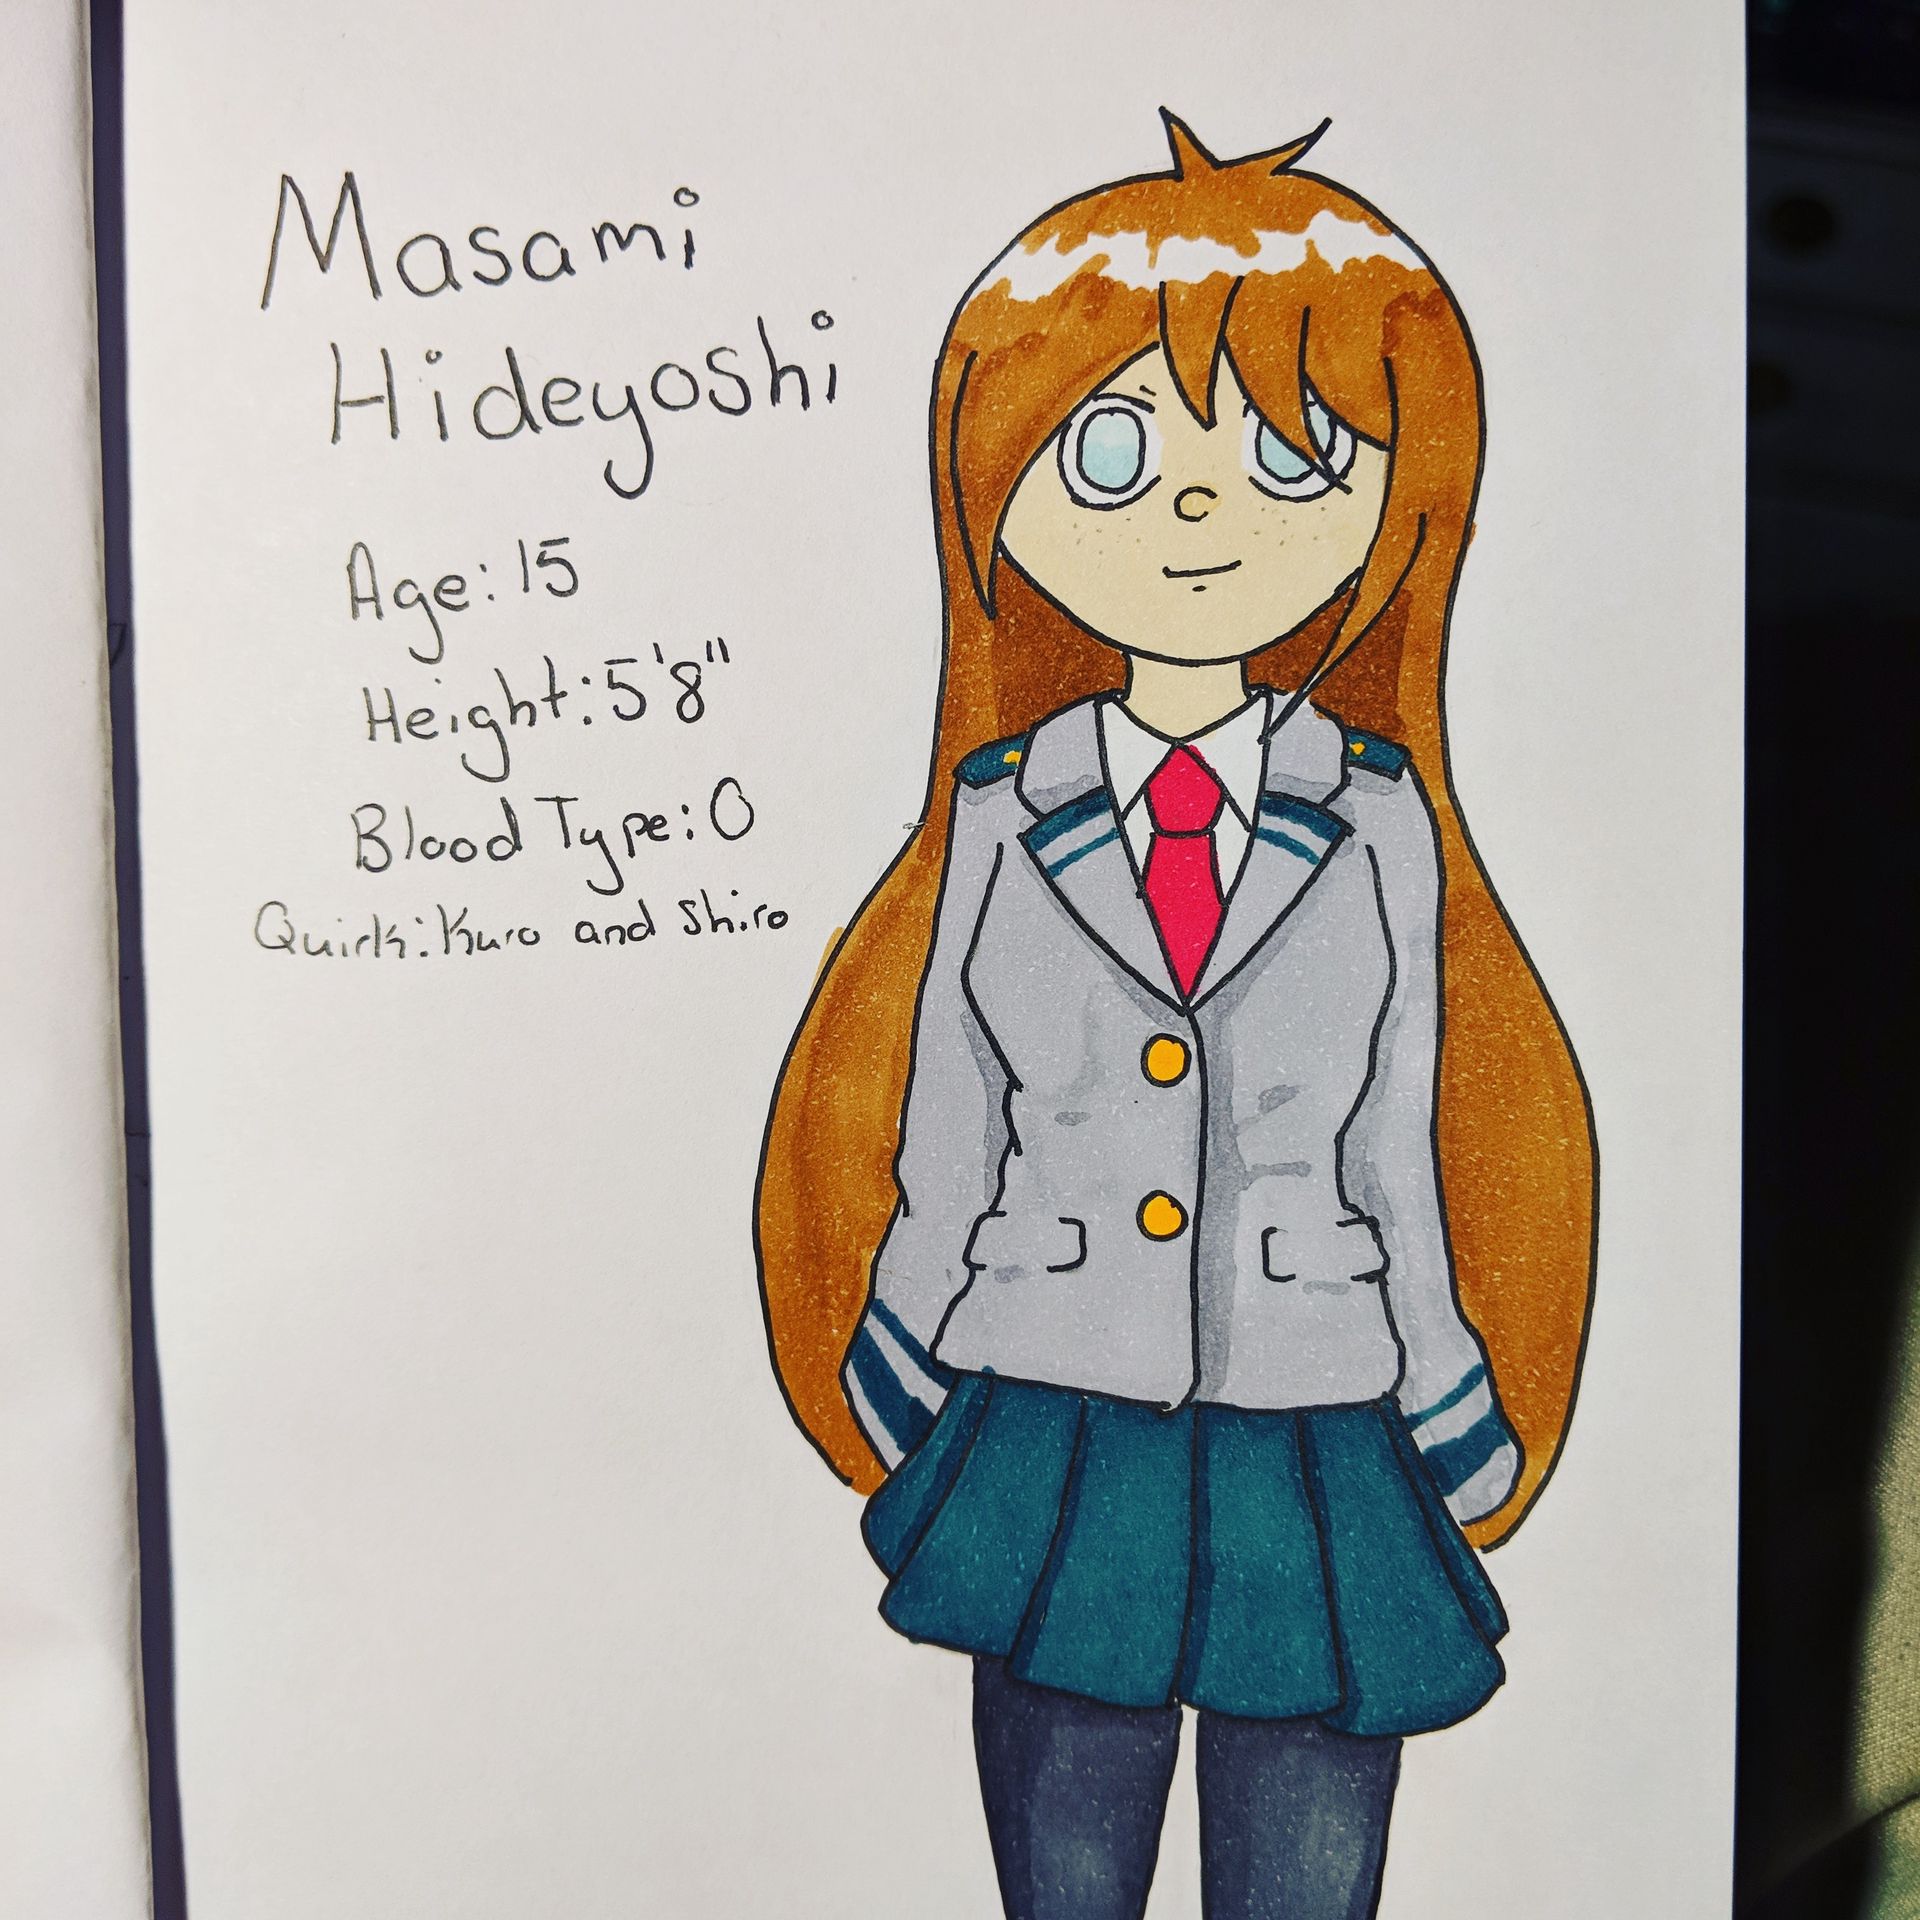 Masami
Hideyoshi
Age: 15
Height: 5'8"
Blood Type: O
Quirk: Kuro and Shiro